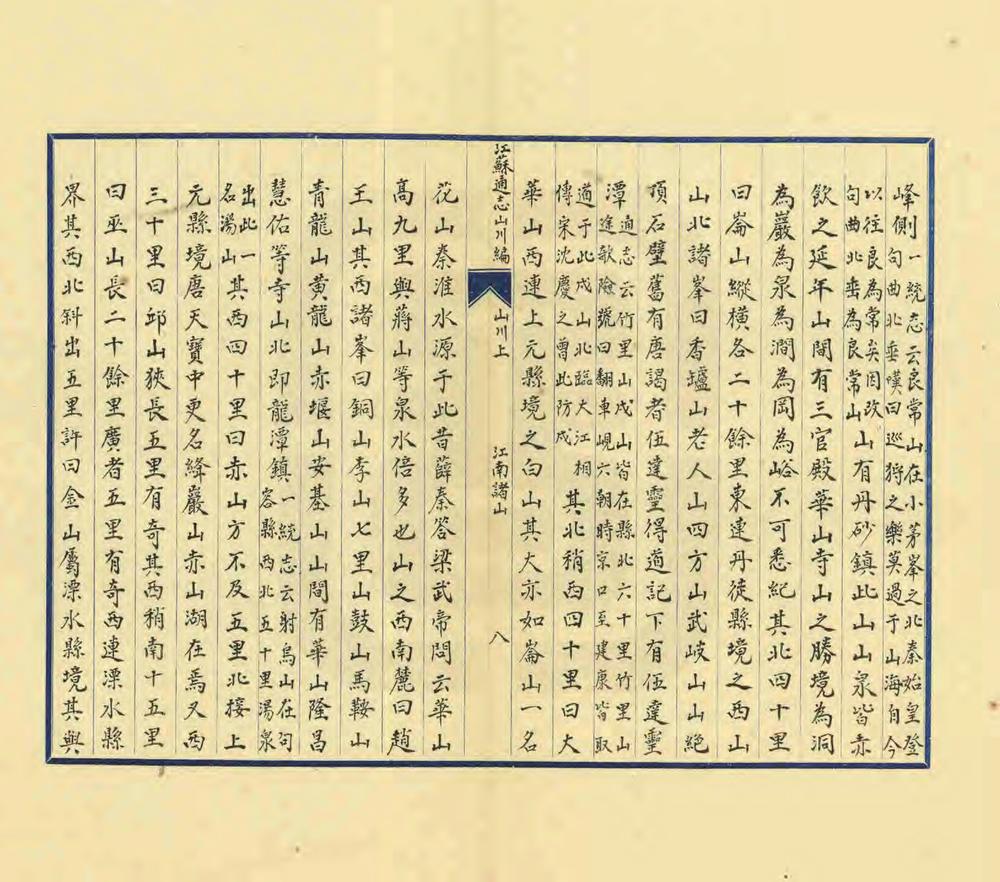 峰側一統志云良常山在小茅峯之北秦始皇登句曲北垂嘆曰巡狩之樂莫過于山海自今
以往良為常矣因改句曲北垂為良常山山有丹砂鎮此山山泉皆赤
飲之延年山間有三官殿華山寺山之勝境為洞
為巖為泉為澗為岡為峪不可悉紀其北四十里
曰崙山縱橫各二十餘里東連丹徒縣境之西山
山北諸峯曰香罏山老人山四方山武岐山山絕
頂石壁舊有唐謁者伍達靈得道記下有伍達靈
潭通志云竹里山戍山皆在縣北六十里竹里山途欹險號曰翻車峴六朝時京口至建康皆取
道于此戍山北臨大江相傳宋沈慶之曾此防戍其北稍西四十里曰大
華山西連上元縣境之白山其大亦如崙山一名
江蘇通志山川編 山川上 江南諸山 八
花山秦淮水源于此昔薛秦答梁武帝問云華山
高九里與蔣山等泉水倍多也山之西南麓曰趙
王山其西諸峯曰銅山李山七里山鼓山馬鞍山
青龍山黄龍山赤堰山安基山山間有華山隆昌
慧佑等寺山北即龍潭鎮一統志云射烏山在句容縣西北五十里湯泉
出此一名湯山其西四十里曰赤山方不及五里北接上
元縣境唐天寶中更名絳巖山赤山湖在焉又西
三十里曰邱山狹長五里有奇其西稍南十五里
曰巫山長二十餘里廣者五里有奇西連溧水縣
界其西北斜出五里許曰金山屬溧水縣境其與